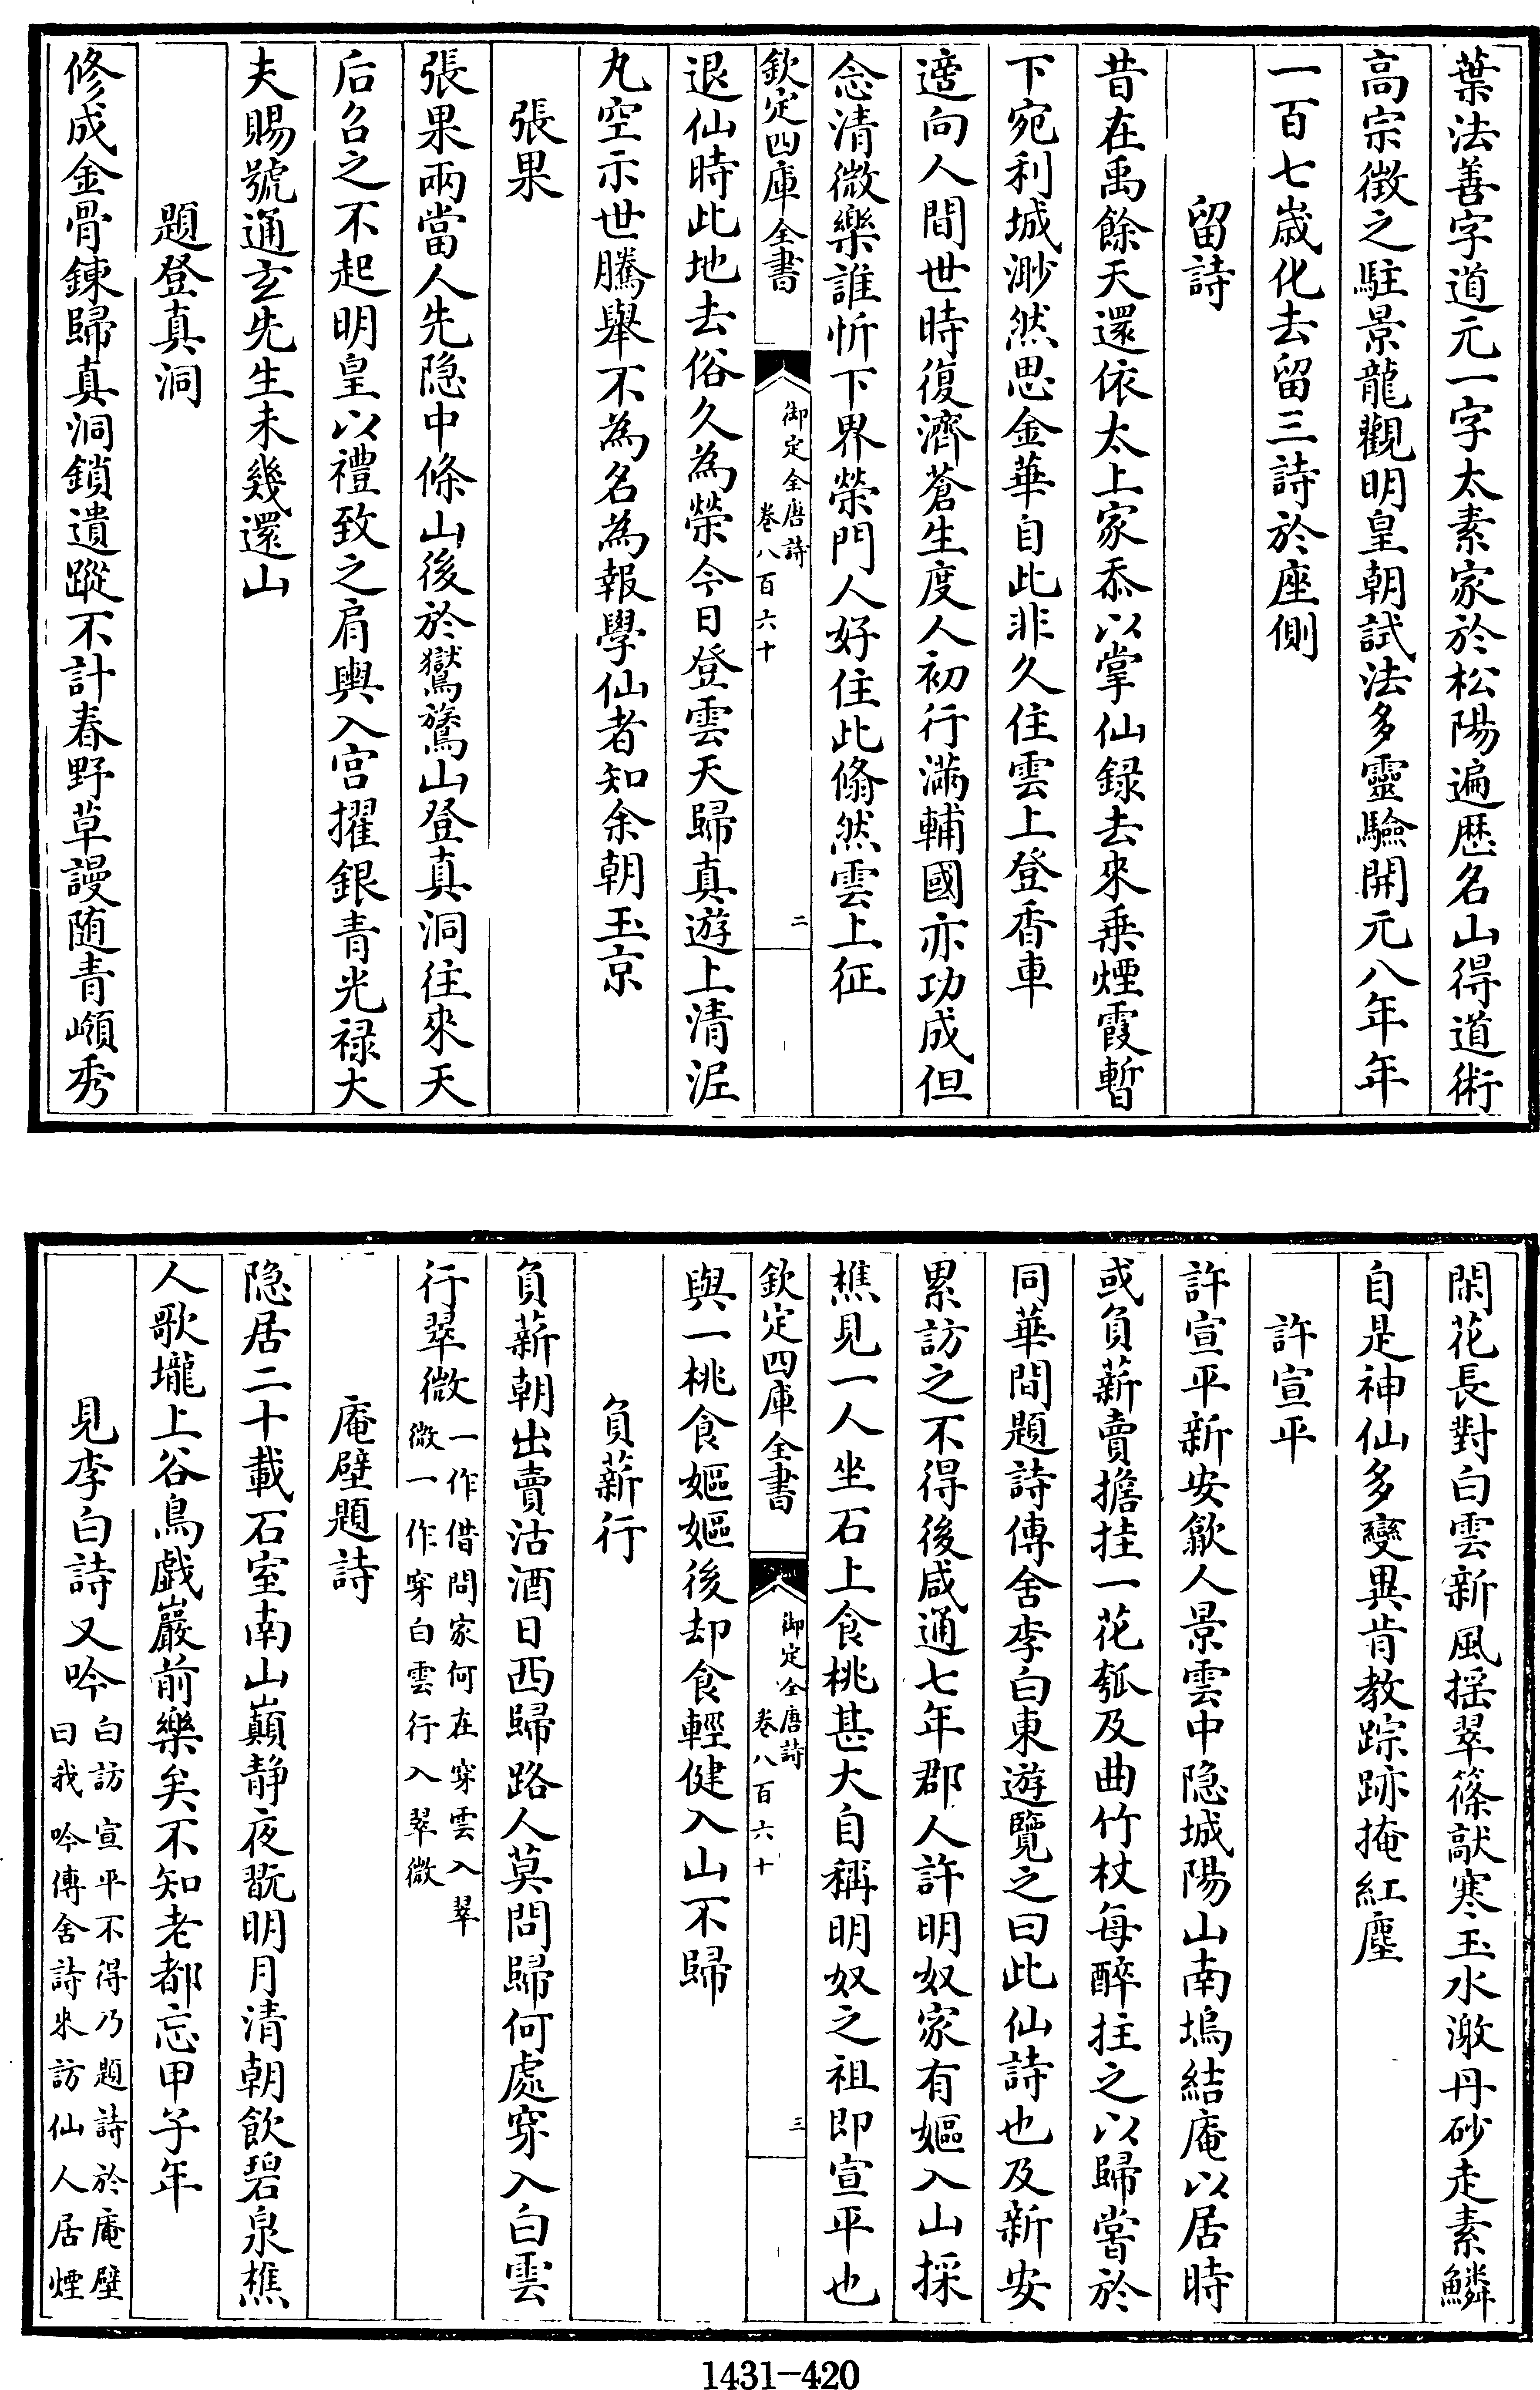 葉法善字道元一字太素家於松陽遍歷名山得道術
高宗徵之駐景龍觀明皇朝試法多靈驗開元八年年
一百七歲化去留三詩於座側
留詩
昔在禹餘天還依太上家忝以掌仙録去來乗煙霞暫
下宛利城渺然思金華自此非久住雲上登香車
適向人間世時復濟蒼生度人初行滿輔國亦功成但
念清微樂誰忻下界榮門人好住此翛然雲上征
欽定四庫全書
御定全唐詩
卷八百六十
二
退仙時此地去俗久為榮今日登雲天歸真遊上清泥
丸空示世騰舉不為名為報學仙者知余朝玉京
張果
張果兩當人先隐中條山後於鸑鷟山登真洞往來天
后召之不起明皇以禮致之肩輿入宫擢銀青光禄大
夫賜號通玄先生未幾還山
題登真洞
修成金骨鍊歸真洞鎖遺蹤不計春野草謾随青嶺秀
閑花長對白雲新風揺翠篠敲寒玉水激丹砂走素鱗
自是神仙多變異肯教踪跡掩紅塵
許宣平
許宣平新安歙人景雲中隐城陽山南塢結庵以居時
或負薪賣擔挂一花瓠及曲竹杖每醉拄之以歸嘗於
同華間題詩傳舍李白東遊覽之曰此仙詩也及新安
累訪之不得後咸通七年郡人許明奴家有嫗入山採
樵見一人坐石上食桃甚大自稱明奴之祖即宣平也
欽定四庫全書
御定全唐詩
卷八百六十
三
與一桃食嫗嫗後却食輕健入山不歸
負薪行
負薪朝出賣沽酒日西歸路人莫問歸何處穿入白雲
行翠微一作借問家何在穿雲入翠
微一作穿白雲行入翠微
庵壁題詩
隐居二十載石室南山巔静夜翫明月清朝飲碧泉樵
人歌壠上谷鳥戱巖前樂矣不知老都忘甲子年
見李白詩又吟白訪宣平不得乃題詩於庵壁
曰我吟傳舍詩来訪仙人居煙
1431-420